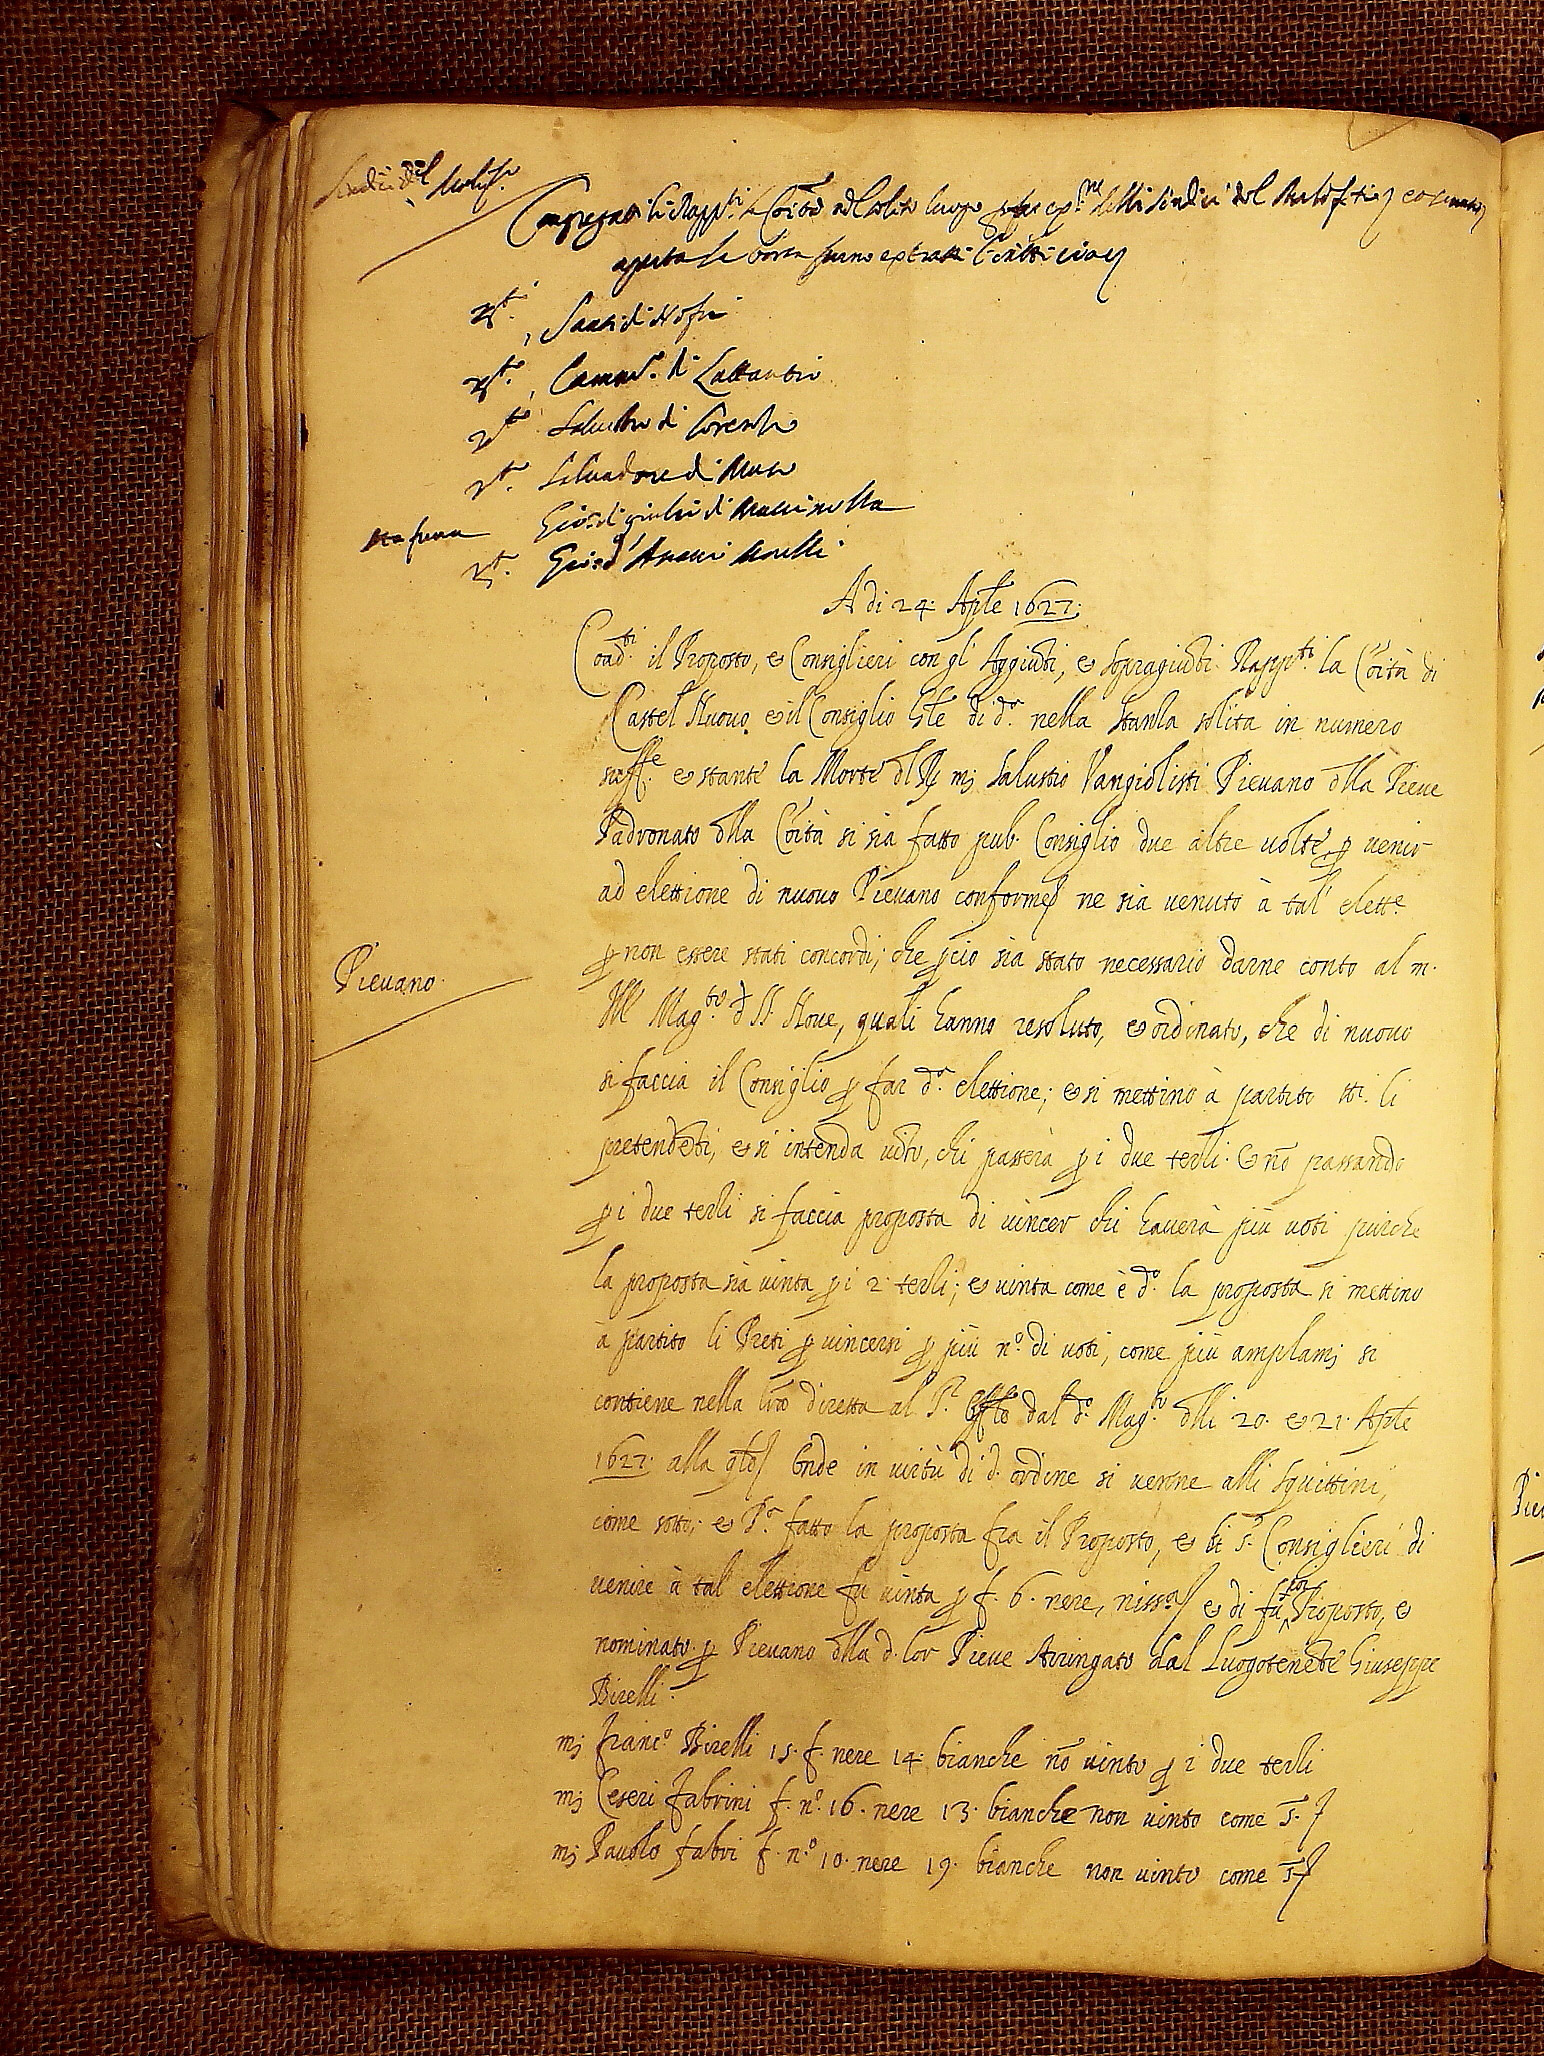 Sindici del Malef.
Congregati li Rapp.ti la Co.ità nel solito luogo per delli Sindici del Malefitio
aperta la borsa furno extratti l'infratti cioe
Santi di Nofri
Camm.o di Lattantio
Salustio di Lorenzo
Salvadore di Meo
Gio: di Giulio di
Gio: d'
A di 24. Aprle 1627:
Coad.ti il Proposto, et Consiglieri con gl' Aggiunti, et sopragiunti Rapp.ti la Co.ità di
Castel Nuovo et il Consiglio Gñle di d.o nella stanza solita in numero
suff.te et stante la Morte dl R. m; Salustio Vangiolisti Pievano dlla Pieve
Padronato dlla Co.ità si sia fatto pub. Consiglio due altre volte p venir
ad elettione di nuovo Pievano ne sia venuto à tal' elett.e
Pievano
p non essere stati concordi; che pciò sia stato necessario darne conto al m.
Ill. Mag.to d SS. Nove, quali hanno resoluto, et ordinato, che di nuovo
si faccia il Consiglio p far d.a elettione; et si mettino à partito tti. li
pretendẽti, et si intenda vĩto, chi passerà p i due terzi. Et nõ passando
p i due terzi si faccia proposta di vincer chi haverà più voti purche
la proposta sia vinta p i 2 terzi; et vinta come è d.o la proposta si mettino
à partito li Preti p vincersi p più n.o di voti, come più amplam; si
contiene nella lr̃a diretta al S.r dal d.o Mag.to dlli 20. et 21. Aprle
1627. alla qle Onde in virtù di d. ordine si venne alli squittini,
come sotto; et P.a fatto la proposta fra il Proposto, et li S. Consiglieri di
venire à tal' elettione fu vinta p f. 6. nere, niss.a et di fu poi Proposto, et
nominato p Pievano dlla d. lor Pieve Arringato dal Luogotenẽte Giuseppe
Birelli.
m; Franc.o Birelli 15. f. nere 14. bianche nõ vinto p i due terzi
m; Ceseri Fabrini f. n.o 16. nere 13. bianche non vinto come s.
m; Pavolo Fabri f. n.o 10. nere 19. bianche non vinto come s.